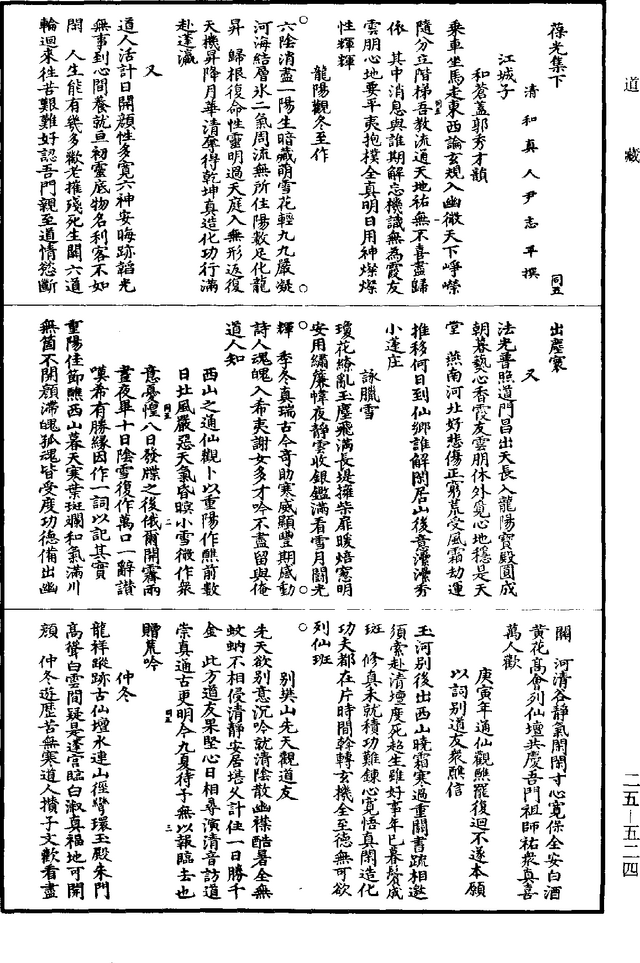 道藏
葆光集下
清和真人尹志平撰
同五
江城子
和蒼蓋郭秀才韻
乘車坐馬走東西論玄規入幽微天下崢嶸
隨分立階梯吾教流通天地祐無不喜盡歸
依 其中消息與誰期解忘機識無為霞友
雲朋心地要平夷抱樸全真明日用神燦燦
性輝輝
龍陽觀冬至作
六陰消盡一陽生暗藏萌雪花輕九九嚴凝
河海結層氷二氣周流無所住陽數足化龍
昇 歸根復命性靈明過天庭入無形返復
天機昇降月華清奪得乾坤真造化功行滿
赴蓬瀛
又
道人活計日開顏性多寬六神安晦跡韜光
無事到心間養就亘初靈底物名利客不如
閑 人生能有幾多歡老摧殘死生關六道
輪迴來往苦艱難好認吾門親至道情慾斷
出塵寰
又
法光普照道門昌出天長入龍陽寶殿圓成
朝暮爇心香霞友雲朋休外覓心地穩是天
堂 燕南河北好悲傷正窮荒受風霜劫運
推移何日到仙鄉誰解閑居山後意灣灣秀
小蓬庄
詠臘雪
瓊花繚亂玉塵飛滿長堤擁柴扉暖焙窻明
安用繡簾幃夜靜雲收銀鑑滿看雪月鬬光
輝 季冬真瑞古今奇助寒威顯豐期感動
詩人魂魄入希夷謝女多才吟不盡留與俺
道人知
西山之通仙觀卜以重陽作醮前數
日北風嚴惡天氣昏暝小雪微作衆
意憂惶八日發牒之後俄爾開霽兩
晝夜畢十日陰雪復作萬口一辭讃
嘆希有勝緣因作一詞以記其實
重陽佳節醮西山暮天寒葉斑斕和氣滿川
無箇不開顏滯魄孤魂皆受度功德備出幽
關 河清谷靜氣閑閑寸心寬保全安白酒
黃花高會列仙壇共慶吾門祖師祐衆真喜
萬人歡
庚寅年通仙觀醮罷復迴不遂本願
以詞別道友衆醮信
玉河別後出西山曉霜寒過重關書䟽相邀
須索赴清壇度死超生雖好事年已暮鬢成
斑 修真未就積功難鍊心寬悟真閑造化
功夫都在片時間斡轉玄機全至德無可欲
列仙班
別㷼山先天觀道友
先天欲別意沉吟就清陰散幽襟酷暑全無
蚊蚋不相侵清靜安居堪父計住一日勝千
金 此方道友果堅心日相尋演清音訪道
崇真通古更明今九夏待予無以報臨去也
贈荒吟
仲冬
龍祥蹤跡古仙壇水連山徑彎環玉殿朱門
高聳白雲間疑是蓬宮臨白淑真福地可開
顏 仲冬遊歷苦無寒道人攢子文歡看盡
二五—五二四